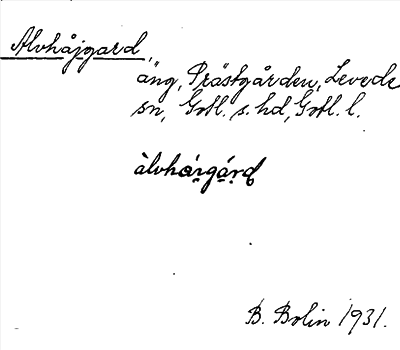 Alvhåjgard,
äng, Prästgården, Levede
sn, Gotl. s. hd, Gotl. l.
àlvhɑ́i̯gɑ́ṛḍ
B. Bolin 1931.